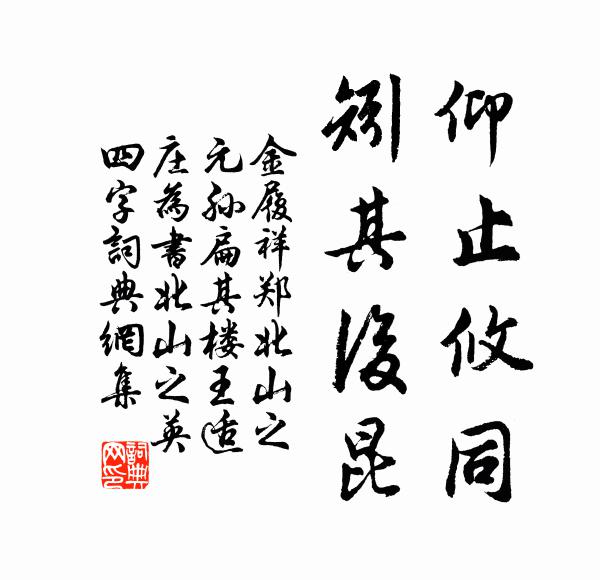 仰止攸同
矧其後昆
金履祥郑北山之
元孙扁其楼王适
庄為書北山之英
四字詞典網集
詞典网印